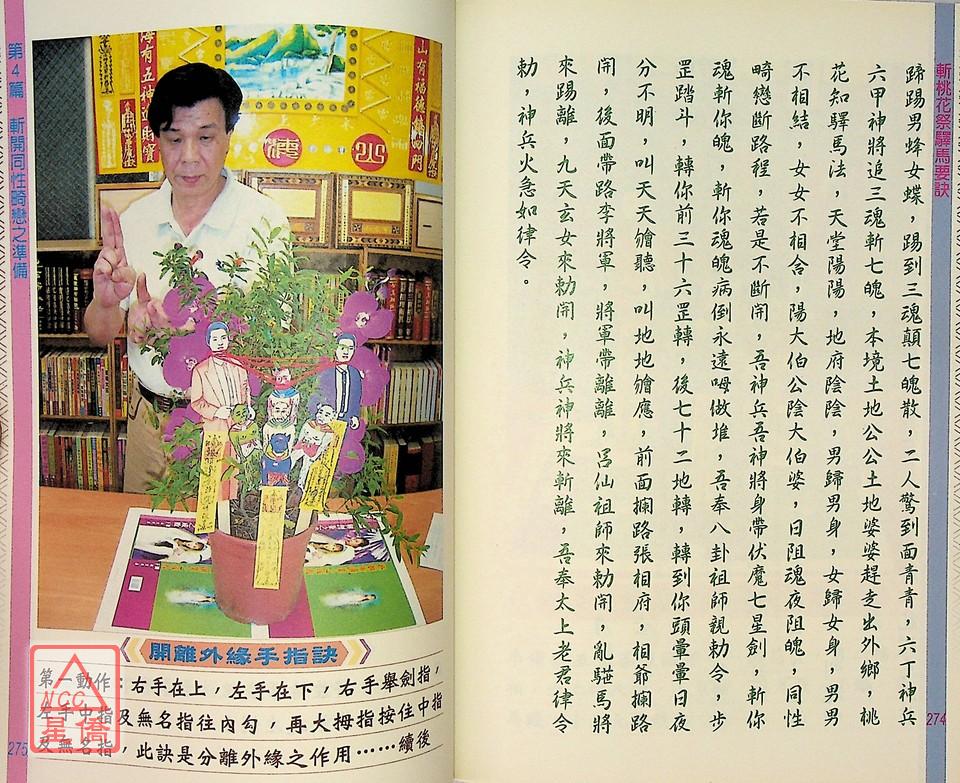 斬桃花祭驛馬要訣
蹄踢男蜂女蝶，踢到三魂顛七魄散，二人驚到面青青，六丁神兵
六甲神將追三魂斬七魄，本境土地公公土地婆婆趕走出外鄉，桃
花知驛馬法，天堂陽陽，地府陰陰，男歸男身，女歸女身，男男
不相結，女女不相合，陽大伯公陰大伯婆，日阻魂夜阻魄，同性
畸戀斷路程，若是不斷開，吾神兵吾神將身帶伏魔七星劍，斬你
魂斬你魄，斬你魂魄病倒永遠呣做堆，吾奉八卦祖師親勅令，步
罡踏斗，轉你前三十六罡轉，後七十二地轉，轉到你頭暈暈日夜
分不明，叫天天㑹聽，叫地地㑹應，前面攔路張相府，相爺攔路
開，後面帶路李將軍，將軍帶離離，呂仙祖師來勅開，亂𩦺馬將
來踢離，九天玄女來勅開，神兵神將來斬離，吾奉太上老君律令
勅，神兵火急如律令。
274
第4篇 斬開同性畸戀之準備
山有福德鎮四門
海有五神造財寶
開離外緣手指訣
第一動作：右手在上，左手在下，右手舉劍指，
左手中指及無名指往內勾，再大拇指按住中指
及無名指，此訣是分離外緣之作用……續後
275
NCC
星僑